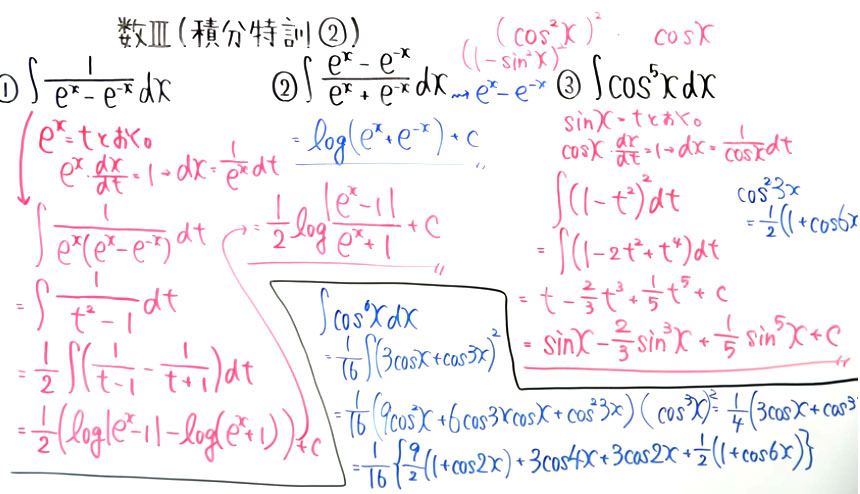 数Ⅲ(積分特訓②)
① ∫ 1/(eˣ - e⁻ˣ) dx
eˣ = t とおく。
eˣ・dx/dt = 1 → dx = 1/eˣ dt
∫ 1/(eˣ(eˣ - e⁻ˣ)) dt
= ∫ 1/(t² - 1) dt
= 1/2 ∫(1/(t-1) - 1/(t+1)) dt
= 1/2 (log|eˣ-1| - log(eˣ+1)) + C
= 1/2 log |eˣ-1|/(eˣ+1) + C
② ∫ (eˣ - e⁻ˣ)/(eˣ + e⁻ˣ) dx → eˣ - e⁻ˣ
= log(eˣ + e⁻ˣ) + C
(cos²x)² cosx
((1-sin²x)²
③ ∫cos⁵x dx
sinx = t とおく。
cosx・dx/dt = 1 → dx = 1/cosx dt
∫(1-t²)² dt
= ∫(1-2t²+t⁴) dt
= t - 2/3 t³ + 1/5 t⁵ + C
= sinx - 2/3 sin³x + 1/5 sin⁵x + C
cos²3x
= 1/2 (1+cos6x
∫cos⁶x dx
= 1/16 ∫(3cosx + cos3x)²
= 1/16 (9cos²x + 6cos3xcosx + cos²3x)
(cos³x)² = 1/4 (3cosx + cos3
= 1/16 {9/2 (1+cos2x) + 3cos4x + 3cos2x + 1/2 (1+cos6x)}